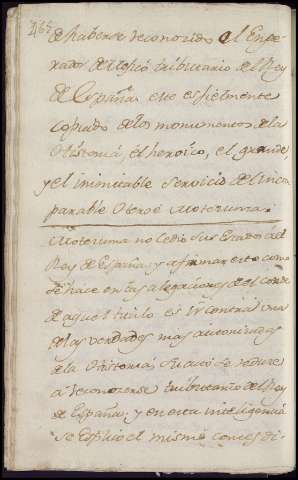 465
de haberse reconocido el Empe-
rador de Mexico tributario del Rey
de España: esto es fielmente
copiado de los monumentos de la
Historia, el heroico, el grande,
y el inimitable servicio del incom
parable Heroe Moteruma.
Moteruma no cedio sus Estados al
Rey de España; y afirmar esto como
se hace en las alegaciones del conde
de aquel titulo es ir contra una
de las verdades mas autorizadas
de la Historia; su acto se reduce
a reconocerse tributario del Rey
de España; y en esta inteligencia
se esplicó el mismo cortes di-